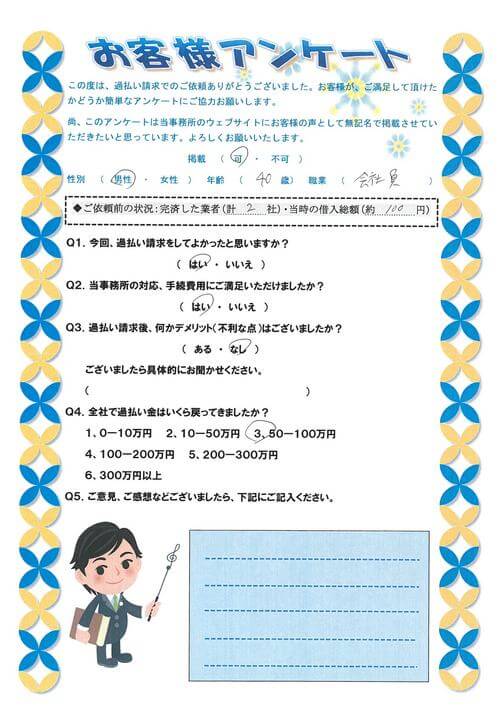 お客様アンケート
この度は、過払い請求でのご依頼ありがとうございました。お客様が、ご満足して頂けた
かどうか簡単なアンケートにご協力お願いします。
尚、このアンケートは当事務所のウェブサイトにお客様の声として無記名で掲載させてい
ただきたいと思っています。よろしくお願いいたします。
掲載 ( 可 ・ 不可 )
性別 ( 男性 ・ 女性 ) 年齢 ( 40 歳) 職業 ( 会社員 )
◆ご依頼前の状況:完済した業者(計 2 社)・当時の借入総額(約 100 円)
Q1. 今回、過払い請求をしてよかったと思いますか?
( はい ・ いいえ )
Q2. 当事務所の対応、手続費用にご満足いただけましたか?
( はい ・ いいえ )
Q3. 過払い請求後、何かデメリット(不利な点)はございましたか?
( ある ・ なし )
ございましたら具体的にお聞かせください。
( )
Q4. 全社で過払い金はいくら戻ってきましたか?
1、0−10万円 2、10−50万円 3、50−100万円
4、100−200万円 5、200−300万円
6、300万円以上
Q5. ご意見、ご感想などございましたら、下記にご記入ください。